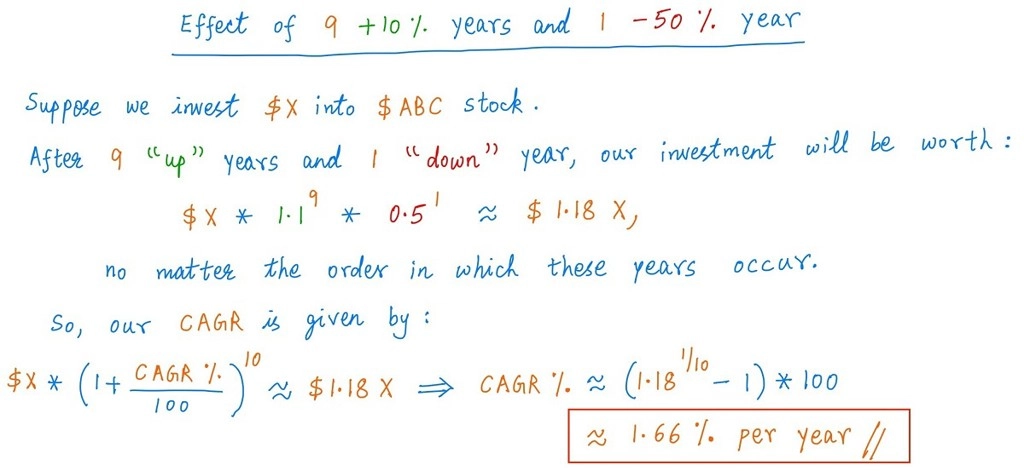 Effect of 9 +10% years and 1 -50% year
Suppose we invest $X into $ABC stock.
After 9 "up" years and 1 "down" year, our investment will be worth:
$X * 1.1^9 * 0.5^1 ≈ $1.18 X,
no matter the order in which these years occur.
So, our CAGR is given by:
$X * (1 + CAGR % / 100)^10 ≈ $1.18 X ⟹ CAGR % ≈ (1.18^1/10 - 1) * 100
≈ 1.66 % per year //